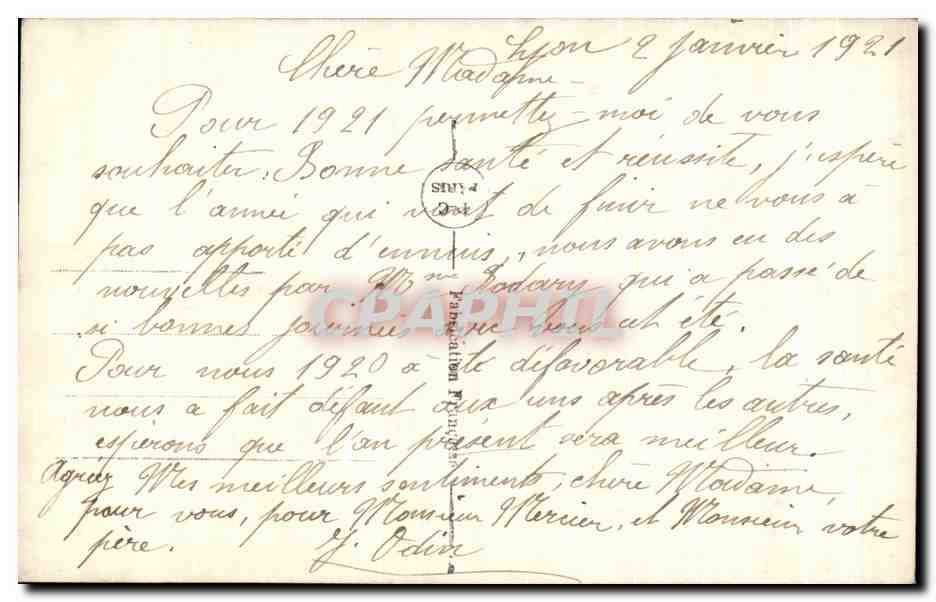 Lyon 2 Janvier 1921
Chère Madame -
Pour 1921 permettez-moi de vous
souhaiter, Bonne santé et réussite, j'espère
que l'année qui vient de finir ne vous à
pas apporté d'ennuis, nous avons eu des
nouvelles par Mme qui a passé de
si bonnes journées avec vous cet été.
Pour nous 1920 à été défavorable, la santé
nous a fait défaut aux uns après les autres,
espérons que l'an présent sera meilleur.
Agréez Mes meilleurs sentiments, chère Madame,
pour vous, pour Monsieur Mercier, et Monsieur votre
père. J. Odin
F C
PARIS
Fabrication Française
CPAPHIL